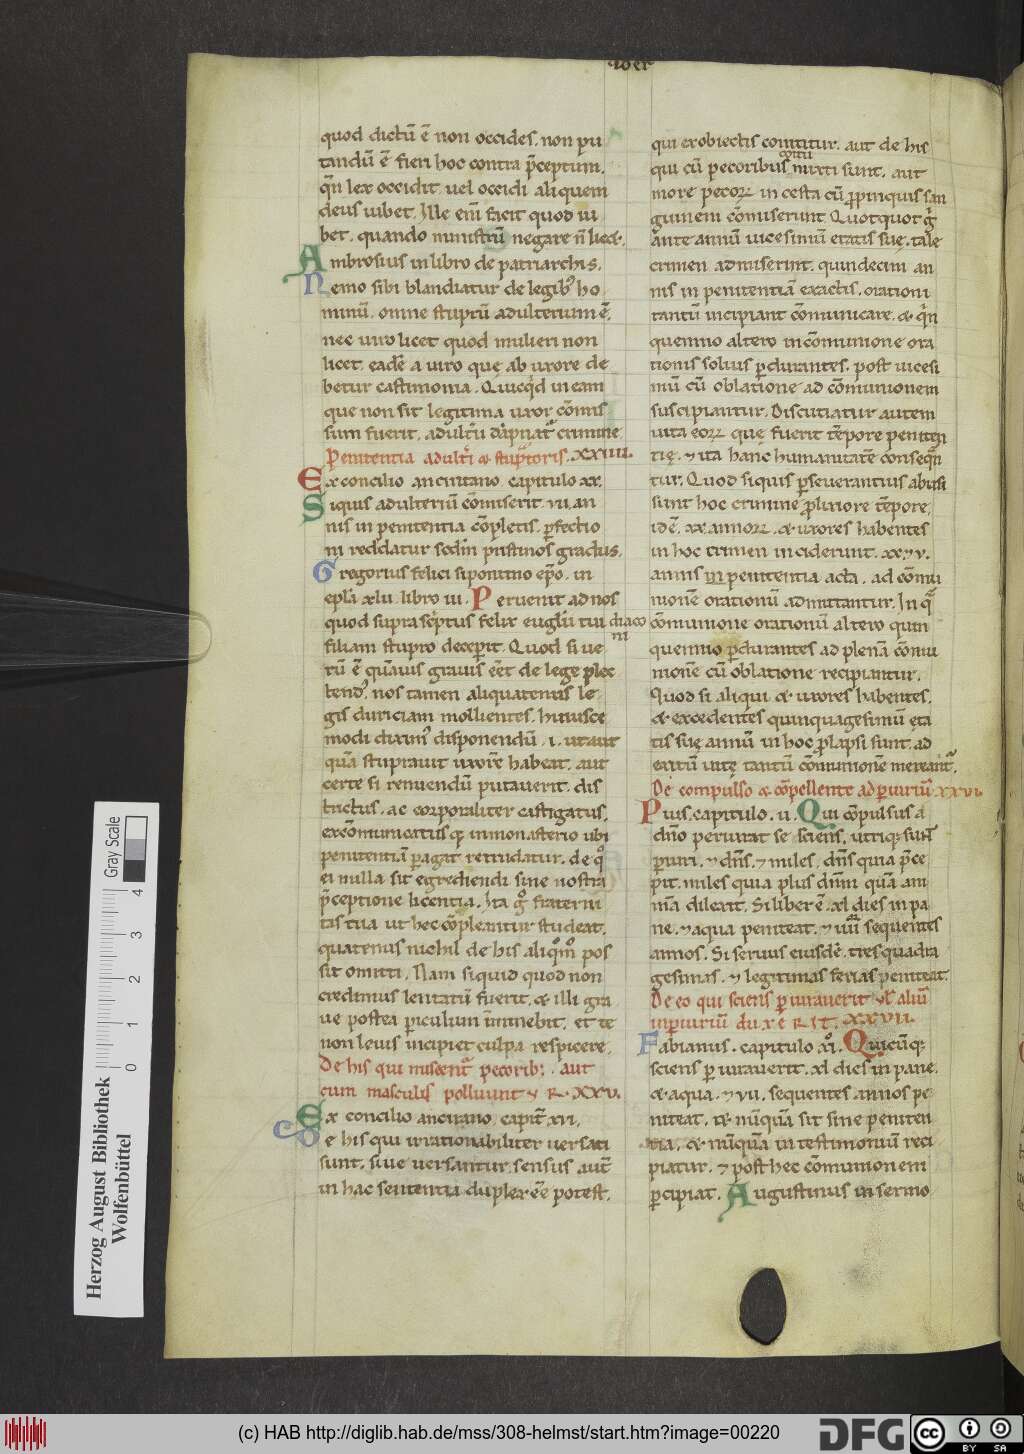 liber
quod dictū ē non occides. non pu
tandū ē fieri hoc contra p̄ceptum.
qn̄ lex occidit uel occidi aliquem
deus iubet. Ille eni facit quod iu
bet. quando ministrū negare n̄ licet.
Ambrosius in libro de patriarchis.
Nemo sibi blandiatur de legib; ho
minū. omne stuprū adulterium ē.
nec uiro licet quod mulieri non
licet. eadē a uiro que ab uxore de
betur castimonia. Quicqd in eam
que non sit legitima uxor cōmis
sum fuerit. adultii dāpnat crimine
Penitentia adultī & stup̄toris. XXIIII.
Ex concilio ancuritano. capitulo xx.
Siquis adulteriū cōmiserit. uii. an
nis in penitentia cōpletis. pfectio
ni reddatur scdm pristinos gradus.
Gregorius felici sipontino ep̄o. in
epl̄a xlii. libro iii. Peruenit ad nos
quod suprascptus felix euglii tui diaco
ni
filiam stupro deceperit. Quod si ue
rū ē quāuis grauis eēt de lege plec
tend. nos tamen aliquatenus le
gis duriciam mollientes. huiusce
modi dixim disponendū .i. ut aut
quā stuprauit uxorē habeat. aut
certe si renuendū putauerit. dis
trictus. ac corporaliter castigatus.
excōmunicatusq; in monasterio ubi
penitentiā pagat retrudatur. de qo
ei nulla sit egrediendi sine nostra
p̄ceptione licentia. Ita go fraterni
tas tua ut hec cōpleantur studeat.
quatenus nichil de his aliqmo pos
sit omitti. Nam siquid quod non
credimus leuitatū fuerit. & illi gra
ue postea piculum īminebit. et te
non leuis incipiet culpa respicere.
De his qui miscent pecorib; . aut
cum masculis polluunt R. XXV.
Ex concilio ancirano. capit xvi.
De his qui irrationabiliter uersati
sunt. siue uersantur. sensus autē
in hac sententia duplex eē potest.
qui ex obiectis comittitur. aut de his
coitu
qui cū pecoribus mixti sunt. aut
more pecorꝝ in cesta cū ppinquis san
guinem cōmiserunt. Quotquot g
ante annū uicesimū etatis suę. tale
crimen admiserint. quindecim an
nis in penitentiā exactis. orationi
tantū incipiant cōmunicare. & qn
quennio altero in cōmunione ora
tionis solius pdurantes. post uicesi
mū cū oblatione ad cōmunionem
suscipiantur. Discutiatur autem
uita eorꝝ quę fuerit tēpore peniten
tię. ⁊ ita hanc humanitatē conseqn
tur. Quod siquis pseuerantius abusi
sunt hoc crimine plixiore tēpore.
id ē. xx. annorꝝ. & uxores habentes
in hoc crimen inciderunt. xx.⁊v.
annis in penitentia acta. ad cōmu
nionē orationū admittantur. In q
cōmunione orationū altero quin
quennio pdurantes ad plenā cōmu
nionē cū oblatione recipiantur.
Quod si aliqui & uxores habentes.
& excedentes quinquagesimū eta
tis suę annū in hoc plapsi sunt. ad
exitū uitę tantū cōmunionē mereant.
De compulso & cōpellente ad piuriū. XXVI.
Pius. capitulo. ii. Qui cōpulsus a
dn̄o periurat se sciens. utriq; sunt
piuri. ⁊ dn̄s. ⁊ miles. dn̄s quia p̄ce
pit. miles quia plus dnm quā ani
mā dilexit. Si liber ē. xl. dies in pa
ne. ⁊ aqua peniteat. ⁊ uii sequentes
annos. Si seruus eiusdē. tres quadra
gesimas. ⁊ legitimas ferias peniteat.
De eo qui sciens piurauerit ul aliū
in piuriū duxerit. XXVII.
Fabianus. capitulo xi. Quicūq;
sciens piurauerit. xl. dies in pane.
& aqua. ⁊ vii. sequentes annos pe
niteat. & nūquā sit sine peniten
tia. & nūquā in testimonium reci
piatur. ⁊ post hec cōmunionem
pcipiat. Augustinus in sermo
Gray Scale
0 1 2 3 4
Herzog August Bibliothek
Wolfenbüttel
(c) HAB http://diglib.hab.de/mss/308-helmst/start.htm?image=00220
DFG
cc BY SA